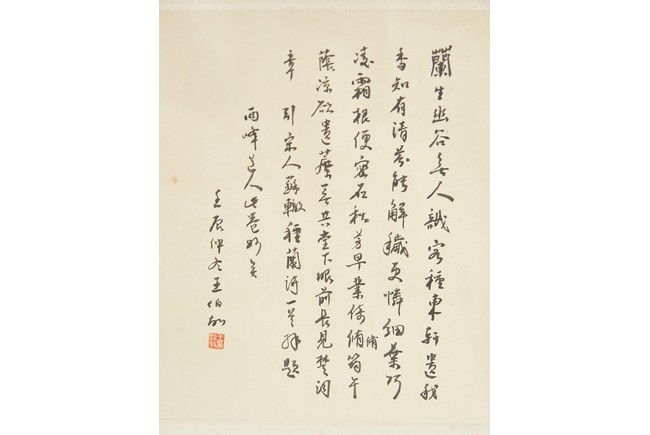 蘭生幽谷無人識客種東軒遺我
香知有清芬能解穢更憐細葉巧
凌霜根便密石秋芳早叢倚脩筠午
脩
蔭涼欲遣蘼蕪共堂下眼前長見楚詞
章 引宋人蘇轍種蘭詩一首拜題
兩峰道人此卷
壬辰仲冬王伯敏